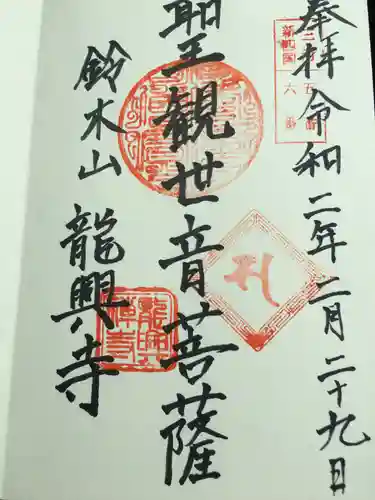 奉拝令和二年二月二十九日
聖観世音菩薩
鈴木山
龍興寺
龍興
禅寺
札